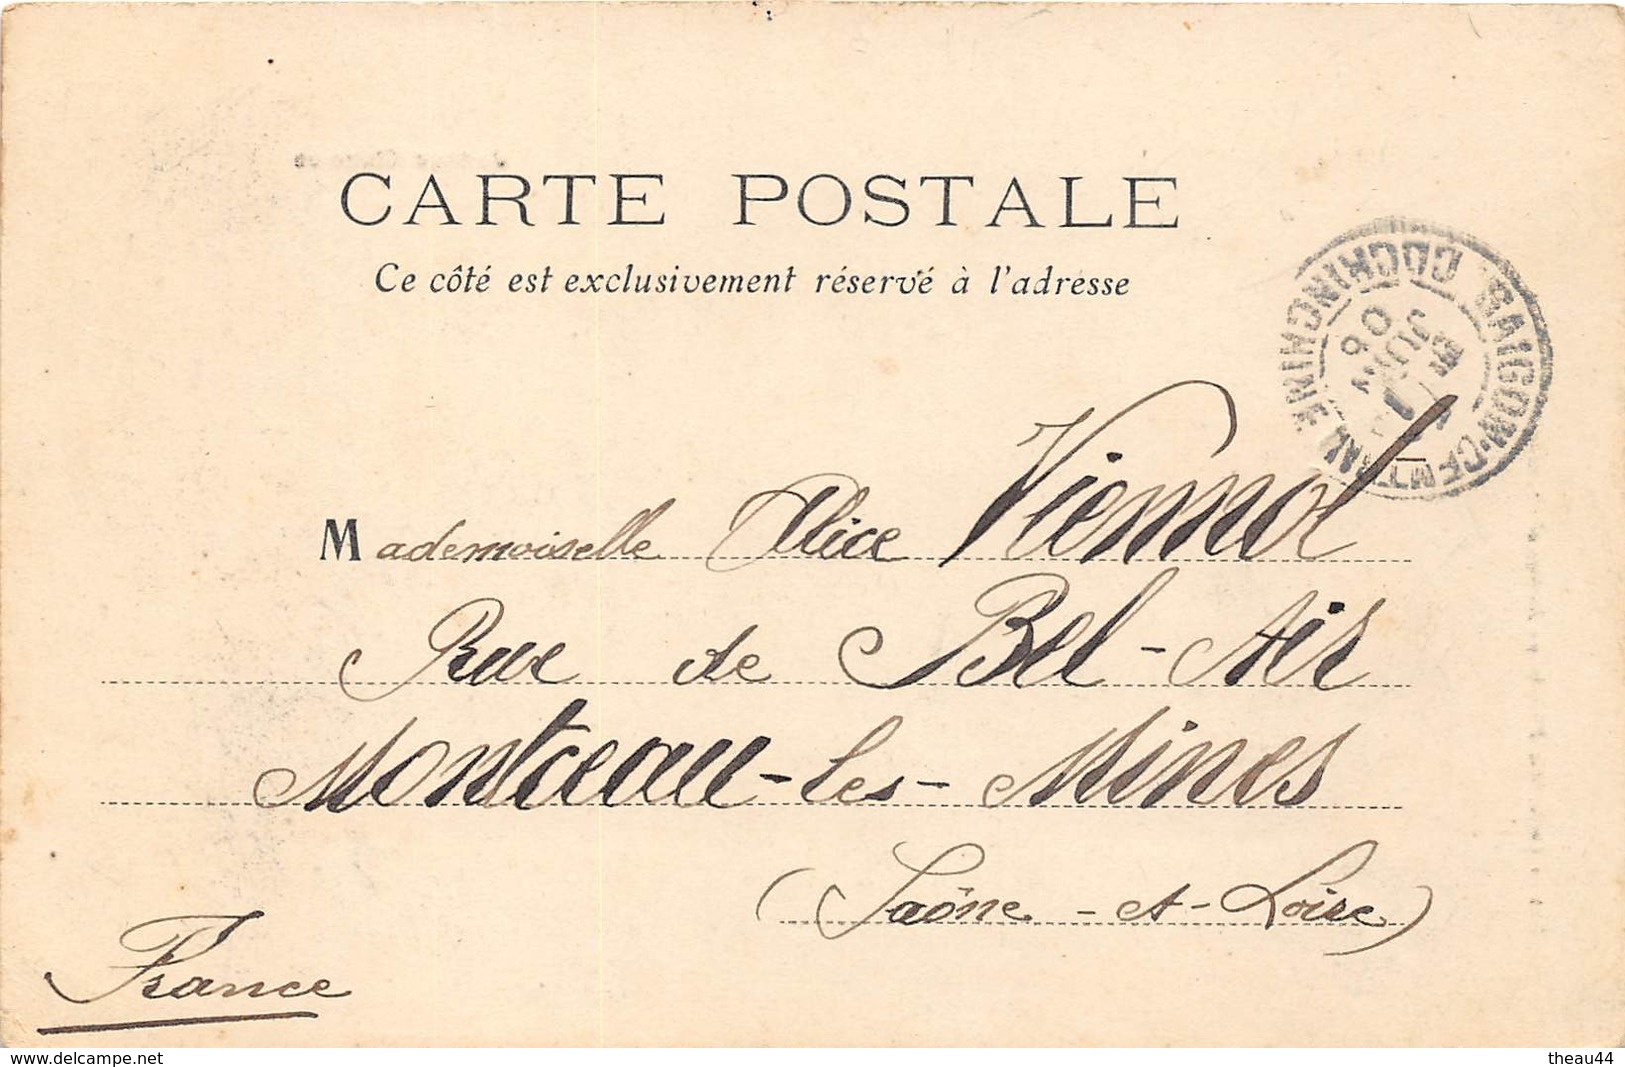 CARTE POSTALE
Ce côté est exclusivement réservé à l'adresse
SAIGON-CENTRAL
COCHINCHINE
JUIN
06
Mademoiselle Alice Viennot
Rue de Bel-Air
Montceau-les-Mines
(Saône-et-Loire)
France
www.delcampe.net
theau44